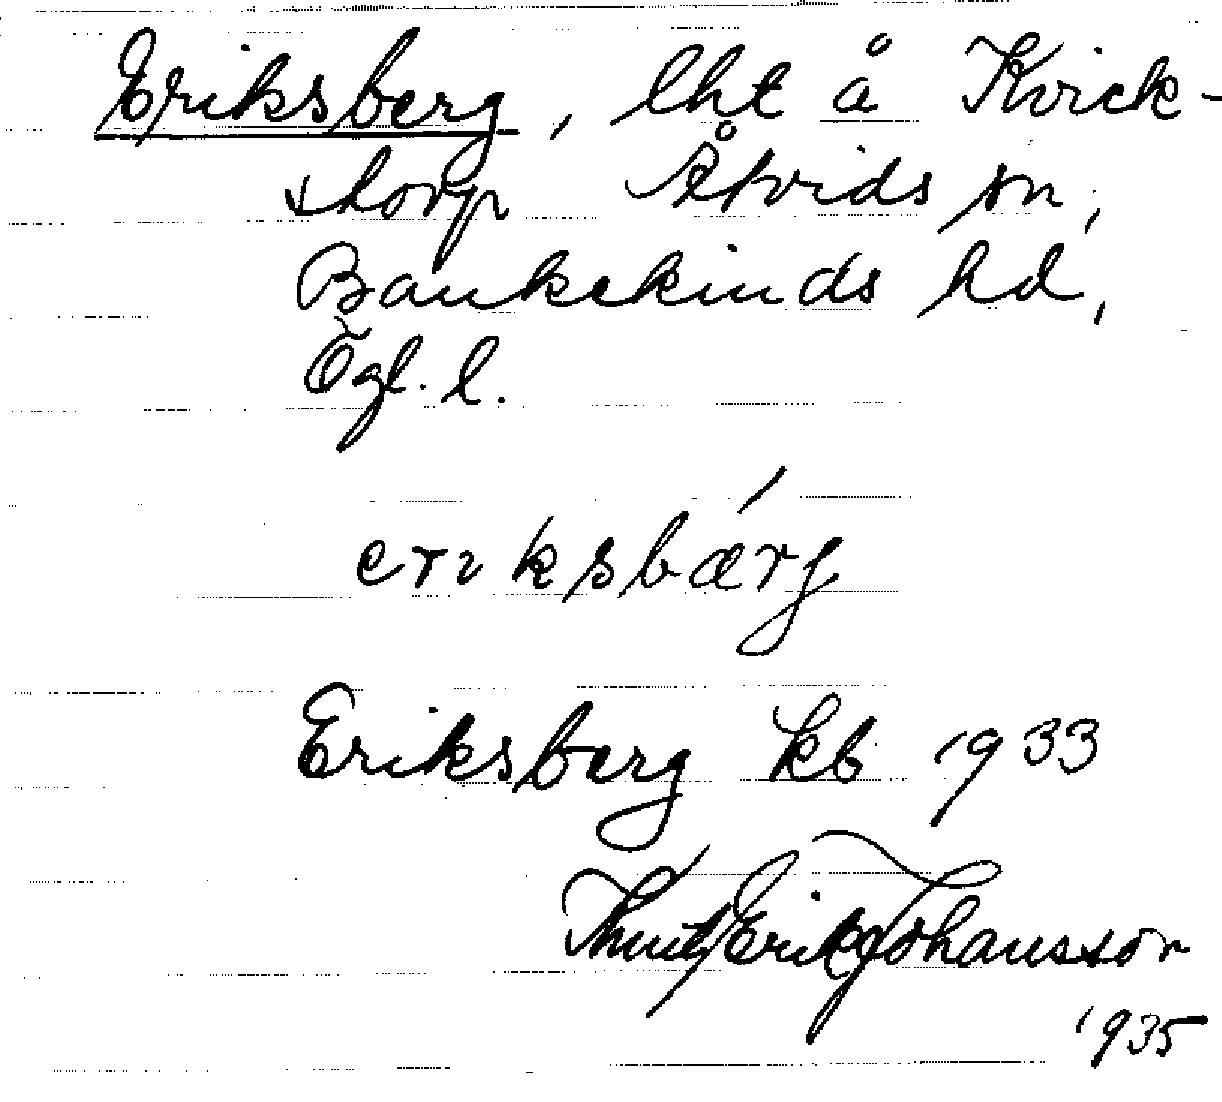 Eriksberg, lht å Kvick-
storp Åtvids sn,
Bankekinds hd,
Ögl. l.
eriksbærg
Eriksberg kb 1933
Knut Erik Johansson
1935